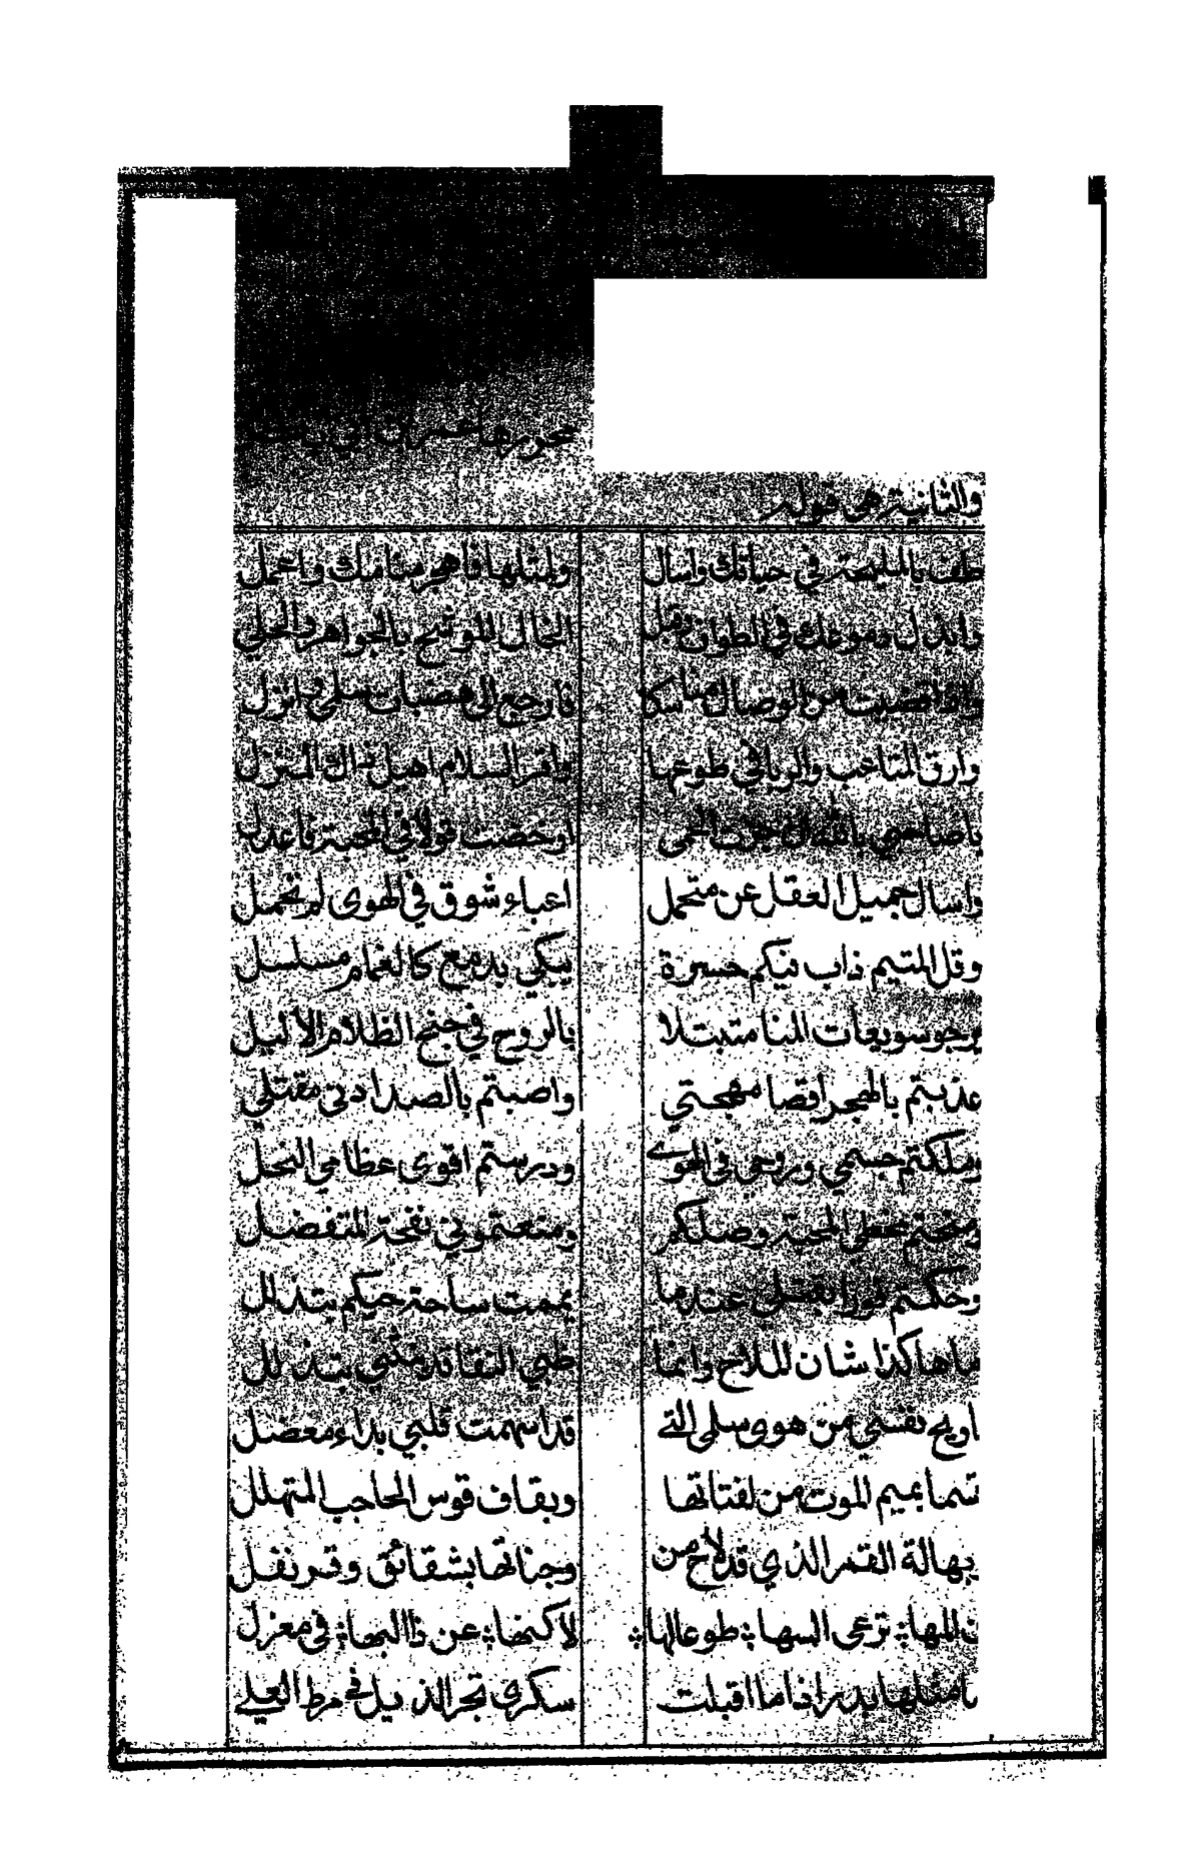 والثانية هي قوله
طف بالمليحة في حياتك واسأل ولمثلها فاهجر منامك واعمل
وابذل دموعك في الطواف وقل الخال الموشح بالجواهر والحلي
واذا قضيت من الوصال مناسكا فارجع الى هضبات سلمى وانزل
وارق المتاعب والربا في طوعها واقر السلام اهيل ذاك المنزل
يا صاحبي بالله ان جزت الحمى او خضت قولا في المحبة فاعدل
واسال جميل العقل عن متحمل اعباء شوق في الهوى لم تحمل
وقل المتيم ذاب فيكم حسرة يبكي بدمع كالغمام مسلسل
يرجو سويعات المنا متبتلا بالروح في جنح الظلام الأليل
عذبتم بالهجر اقصا مهجتي واصبتم بالصد ادنى مقتلي
وملكتم جسمي وروحي في الهوى ودرستم اقوى عظامي النحل
ومنحتم المحبة وصلكم ومنعتموني نفحة المتفضل
وحكمتم فورا بقتلي عندما يممت ساحة حيكم بتذلل
ما هاكذا شان الملاح وانما ظبي النقا قد ينثني بتذلل
اويح نفسي من هوى سلمى التي قد اسهمت قلبي بداء معضل
قسما بميم الموت من لفتاتها وبقاف قوس الحاجب المتهلل
بهالة القمر الذي قد لاح من وجناتها بشقائق وقرنفل
المها ترعى السها طوعا لها لاكنها عن ذا البها في معزل
ما مثلها بدر اذا ما اقبلت سكرى تجر الذيل في مرط العلي